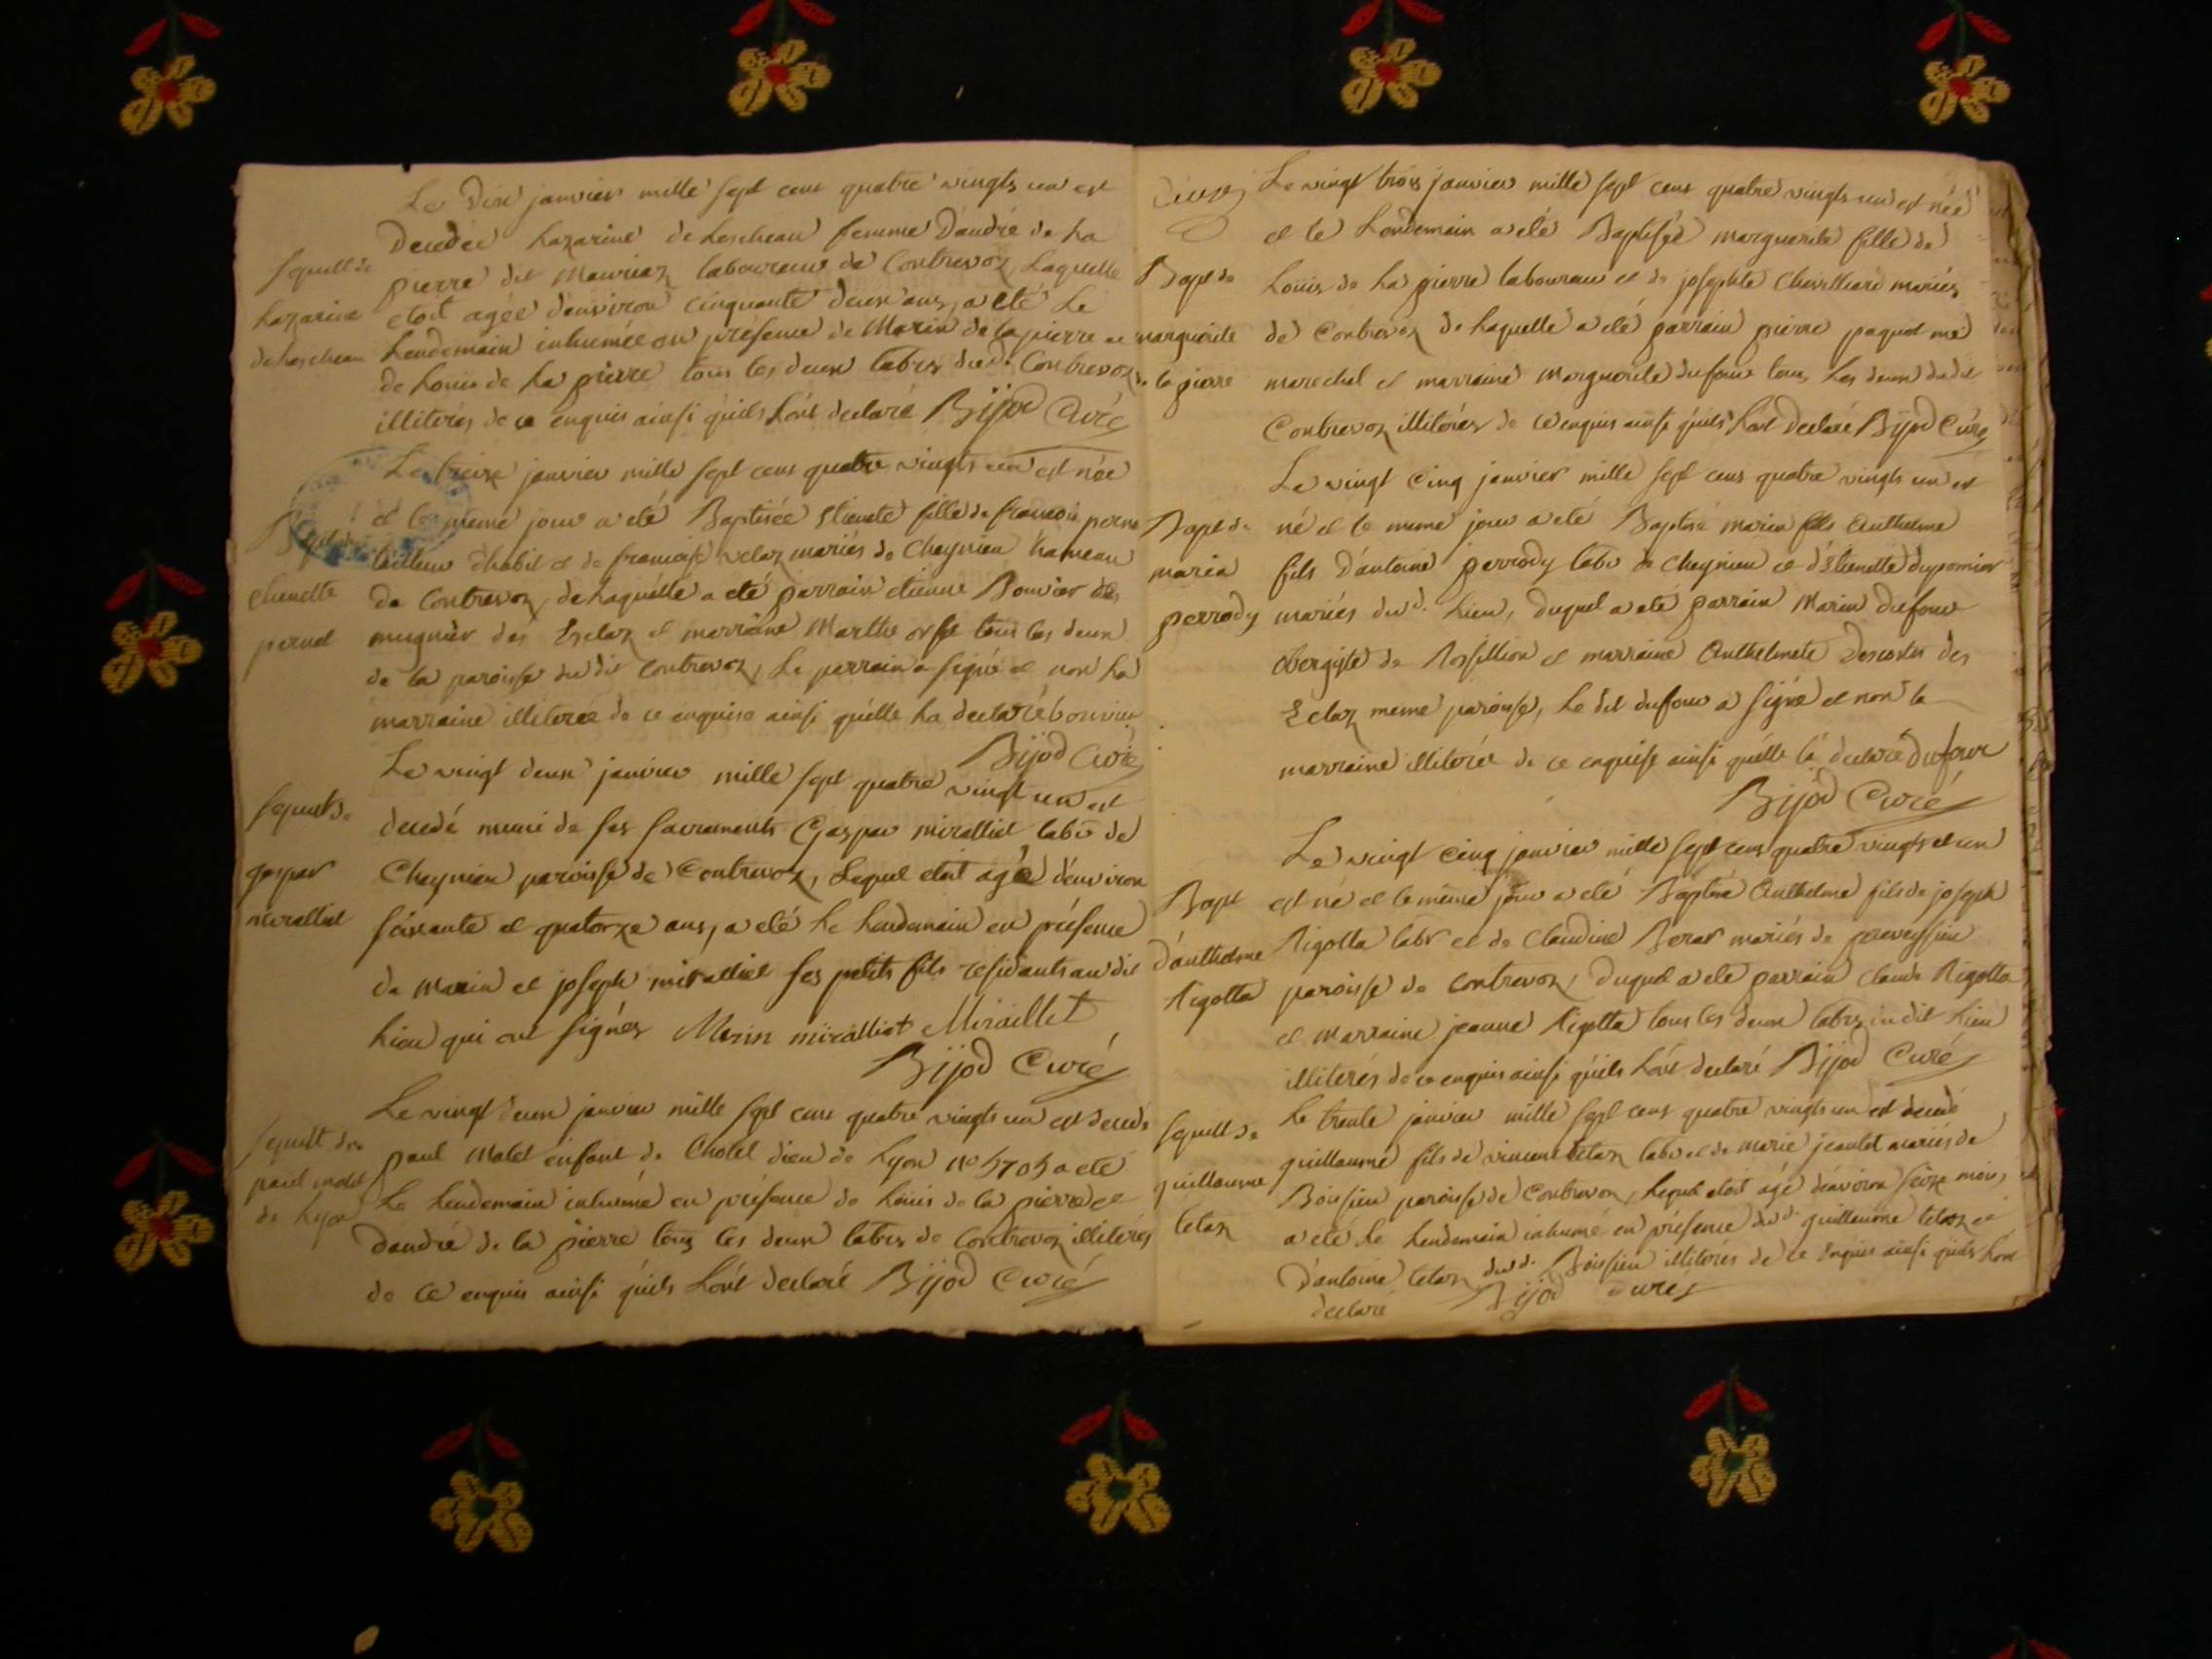 Le Dix janvier mille sept cens quatre vingts un est
Decedée Lazarine de Lescheau femme D'andré de La
pierre dit Mauriaz laboureur de Contrevoz, Laquelle
etoit agée d'environ cinquante deux ans, a eté Le
Lendemain inhumée en présence de Marin de la pierre et
de Louis de La pierre tous les deux labrs dud. Contrevoz
illiterés de ce enquis ainsi qu'ils L'ont declaré Bijod Curé
Sepult de
Lazarine
de Lescheau
Le treize janvier mille sept cens quatre vingts un est née
et le meme jour a eté Baptisée Etienete fille de francois pernet
tailleur d'habit et de francoise velaz mariés de Cheynieu hameau
de Contrevoz, de Laquelle a eté parrain etienne Bouvier
meugnier des Esclaz et marraine Marthe tous les deux
de la paroisse du dit Contrevoz, Le parrain a signé et non La
marraine illiterée de ce enquise ainsi qu'elle La declaré bouvier
Bijod Curé
etienette
pernet
Le vingt deux janvier mille sept quatre vingt un est
decedé muni de ses sacrements Gaspar miralliet labr de
Cheynieu paroisse de Contrevoz, Lequel etoit agé d'environ
soixante et quatorze ans, a eté Le Lendemain en présence
de Marin et joseph miralliet ses petits fils residants au dit
Lieu qui ont signés Marin miralliet Miraillet
Bijod Curé
Sepult de
gaspar
miralliet
Le vingt deux janvier mille sept cens quatre vingts un est decedé
paul Matet enfant de L'hotel dieu de Lyon No 5705 a eté
Le Lendemain inhumé en présence de Louis de la pierre et
d'andré de la pierre tous les deux labrs de Contrevoz illiterés
de ce enquis ainsi qu'ils L'ont declaré Bijod Curé
Sepult de
paul matet
de Lyon
Le vingt trois janvier mille sept cens quatre vingts un est née
et le Lendemain a eté Baptisée marguerite fille de
Louis de La pierre laboureur et de josephte Chevilliard mariés
de Contrevoz de Laquelle a eté parrain pierre paquet me
marechal et marraine Marguerite dufour tous Les deux dudit
Contrevoz illiterés de ce enquis ainsi qu'ils L'ont Declaré Bijod Curé
Deux
Bapt de
marguerite
de la pierre
Le vingt Cinq janvier mille sept cens quatre vingts un est
né et le meme jour a eté Baptisé marin fils Anthelme
fils D'antoine perrody labr de Cheynieu et d'Etienette dupomier
mariés dud. Lieu, duquel a eté parrain Marin Dufour
obergiste de Rossillion et marraine Anthelmete Descotes des
Eclaz meme paroisse, Le dit dufour a signé et non la
marraine illiterée de ce enquise ainsi qu'elle l'a declaré Dufour
Bijod Curé
Bapt de
marin
perrody
Le vingt Cinq janvier mille sept cens quatre vingts et un
est né et le meme jour a eté Baptisé Anthelme fils de joseph
Rigotta labr et de Claudine Berar mariés de preveyssieu
paroisse de Contrevoz, duquel a eté parrain Claude Rigotta
et Marraine jeanne Rigotta tous les deux labrs du dit Lieu
illiterés de ce enquis ainsi qu'ils L'ont declaré Bijod Curé
Bapt
d'anthelme
Rigotta
Le trente janvier mille sept cens quatre vingts un est decedé
guillaume fils de vincent tetaz labr et de marie jeantet mariés de
Boissieu paroisse de Contrevoz, Lequel etoit agé d'environ seize mois,
a eté Le Lendemain inhumé en présence dud. guillaume tetaz et
D'antoine tetaz dud. Boissieu illiterés de ce enquis ainsi qu'ils L'ont
declaré Bijod Curé
Sepult de
guillaume
tetaz